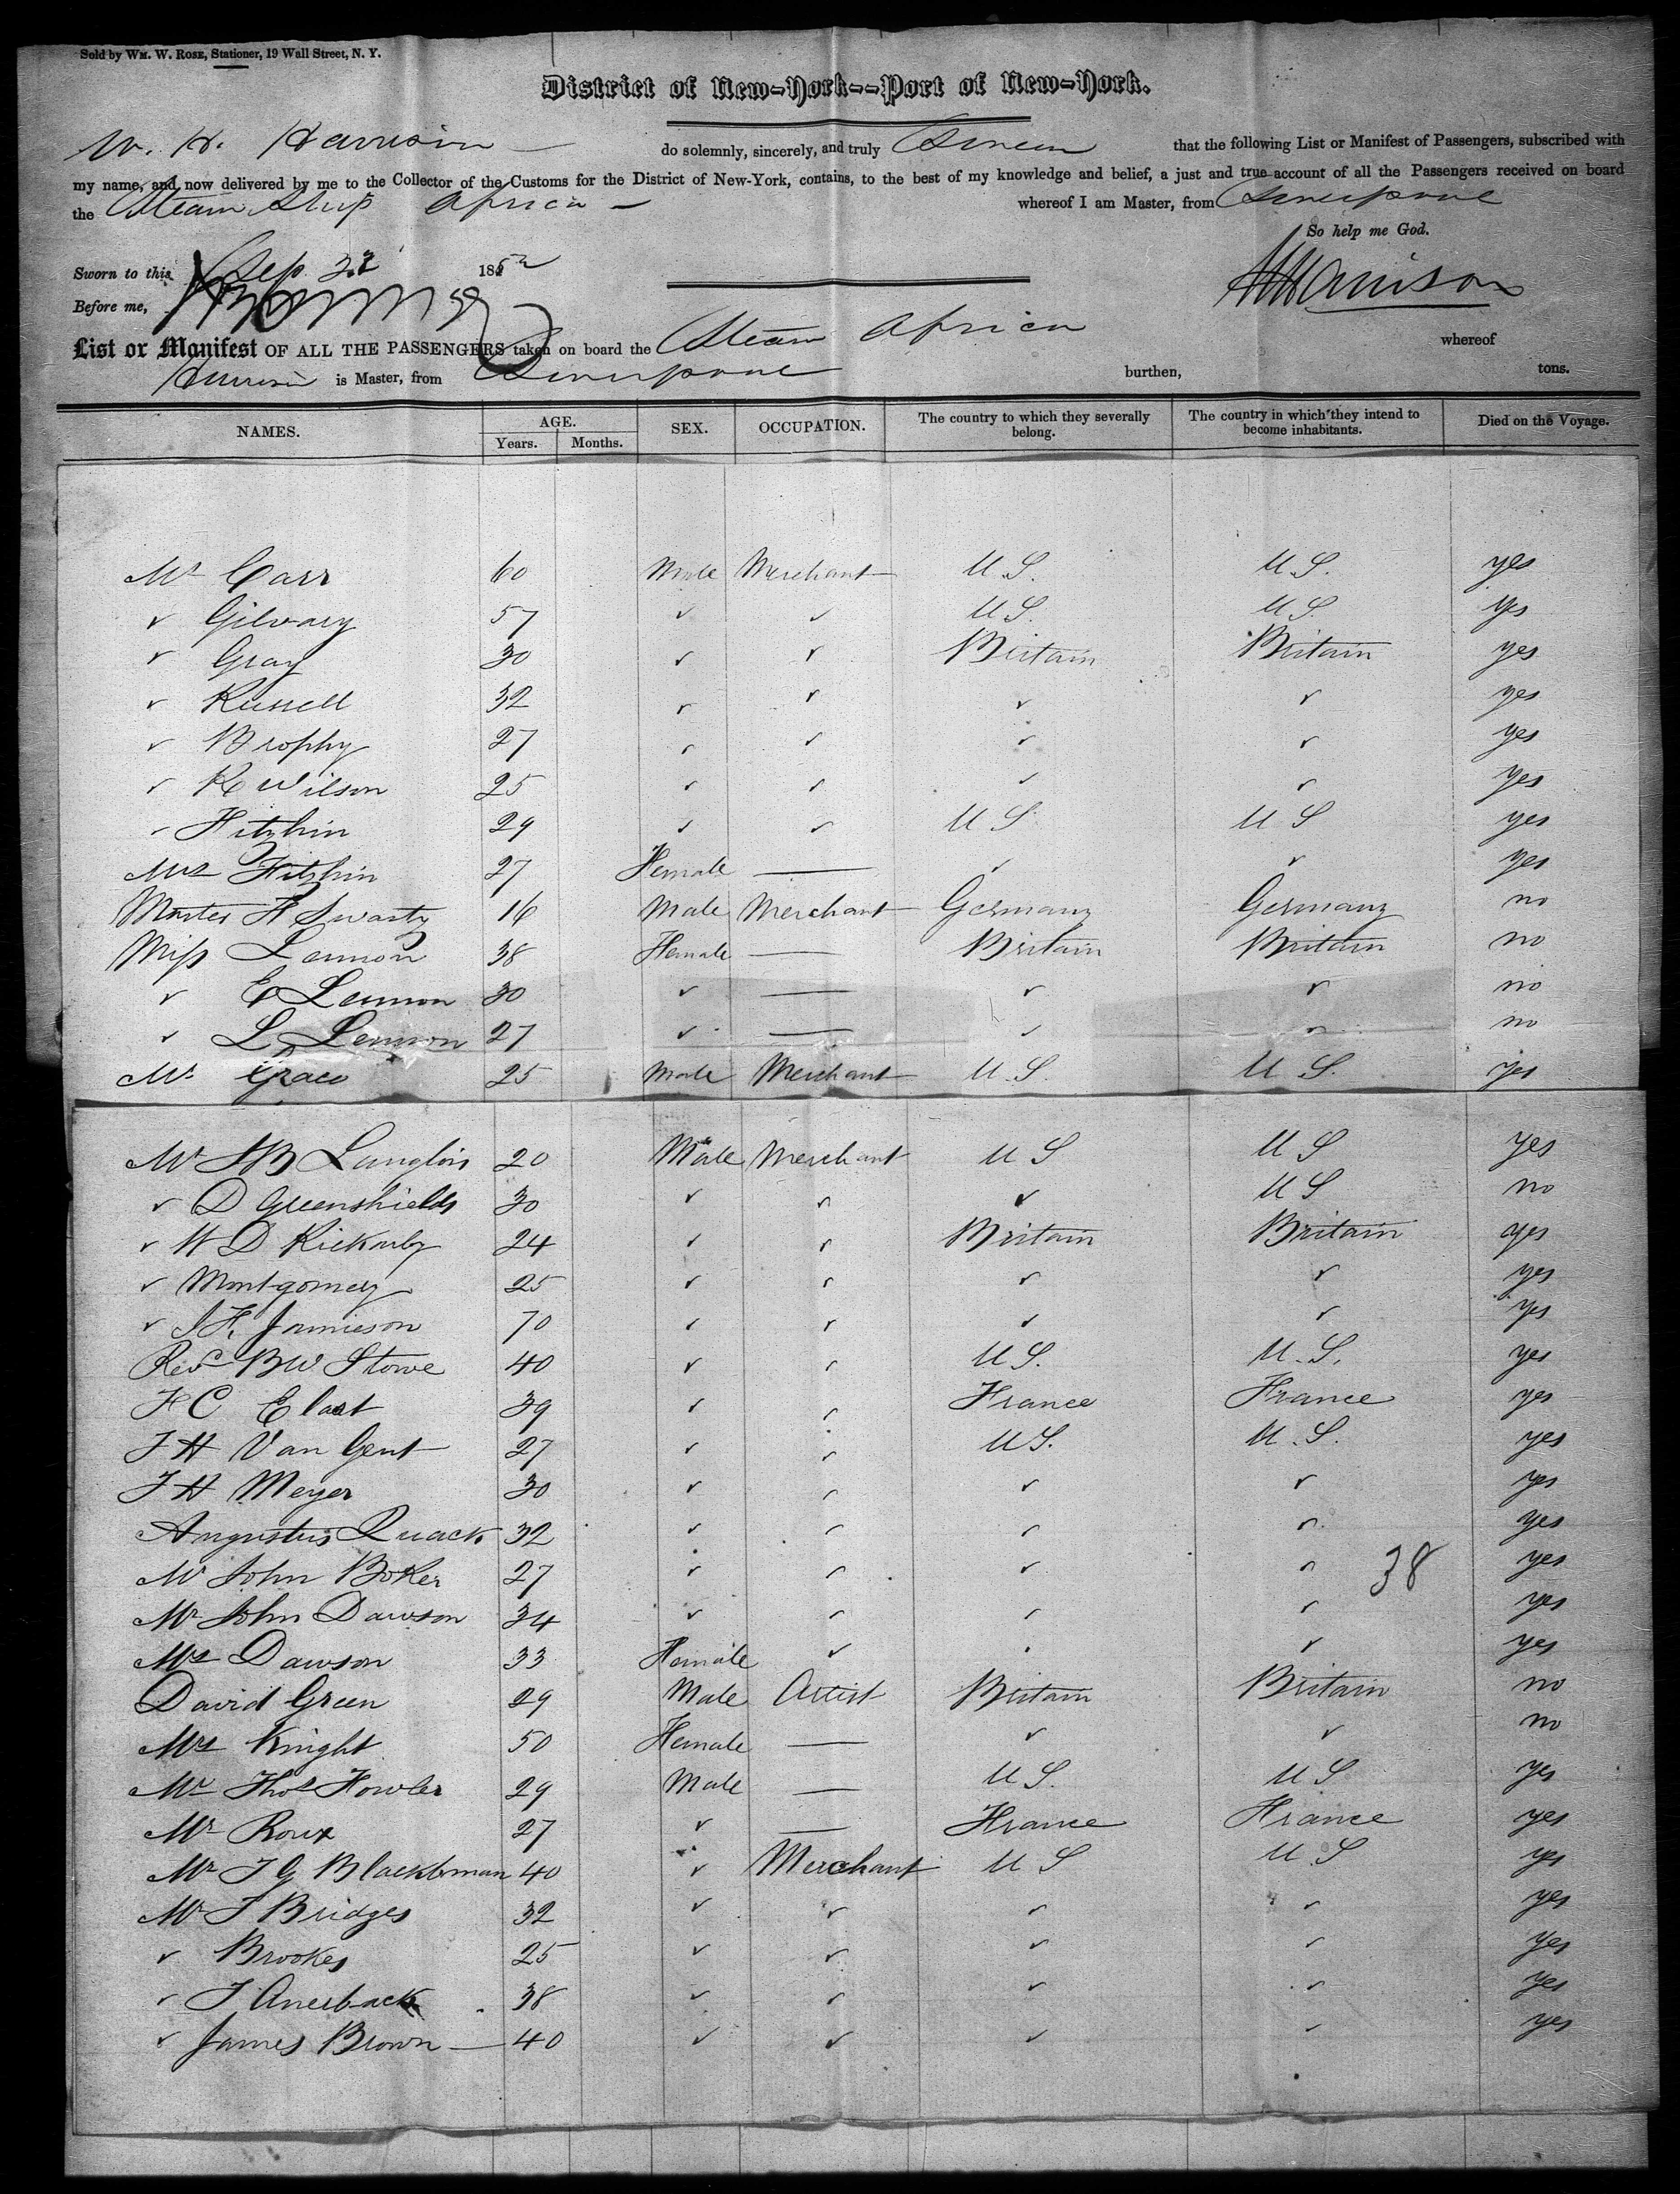 Sold by WM. W. ROSE, Stationer, 19 Wall Street, N. Y.
District of New-York--Port of New-York.
W. H. Harrison do solemnly, sincerely, and truly Swear that the following List or Manifest of Passengers, subscribed with
my name, and now delivered by me to the Collector of the Customs for the District of New-York, contains, to the best of my knowledge and belief, a just and true account of all the Passengers received on board
the Steam Ship Africa whereof I am Master, from Liverpool
So help me God.
Sworn to this Sep. 22 1852
Before me,
W H Harrison
List or Manifest OF ALL THE PASSENGERS taken on board the Steam Africa whereof
Harrison is Master, from Liverpool burthen, tons.
NAMES. AGE. Years. Months. SEX. OCCUPATION. The country to which they severally belong. The country in which they intend to become inhabitants. Died on the Voyage.
Mr Carr 60 Male Merchant U.S. U.S. yes
✓ Gilvary 57 ✓ ✓ U.S. U.S. yes
✓ Gray 30 ✓ ✓ Britain Britain yes
✓ Russell 32 ✓ ✓ ✓ ✓ yes
✓ Brophy 27 ✓ ✓ ✓ ✓ yes
✓ R Wilson 25 ✓ ✓ ✓ ✓ yes
✓ Fitzhin 29 ✓ ✓ U S U S yes
Mrs Fitzhin 27 Female — ✓ ✓ yes
Master H Swarty 16 Male Merchant Germany Germany no
Miss Lennon 38 Female — Britain Britain no
✓ E Lennon 30 ✓ — ✓ ✓ no
✓ L Lennon 27 ✓ — ✓ ✓ no
Mr Graco 25 Male Merchant U.S. U.S. yes
Mr Langlois 20 Male Merchant U S U S yes
✓ D Greenshields 30 ✓ ✓ ✓ U S no
✓ W D Rickarby 24 ✓ ✓ Britain Britain yes
✓ Montgomery 25 ✓ ✓ ✓ ✓ yes
✓ J H. Jamieson 70 ✓ ✓ ✓ ✓ yes
Revd B W Stowe 40 ✓ ✓ U S. U.S. yes
F C Elast 39 ✓ ✓ France France yes
J H Van Gent 27 ✓ ✓ U S. U.S. yes
J H Meyer 30 ✓ ✓ ✓ ✓ yes
Augustus Quack 32 ✓ ✓ ✓ ✓ yes
Mr John Boker 27 ✓ ✓ ✓ ✓ 38 yes
Mr John Dawson 34 ✓ ✓ ✓ ✓ yes
Mrs Dawson 33 Female ✓ ✓ ✓ yes
David Green 29 Male Artist Britain Britain no
Mrs Knight 50 Female — ✓ ✓ no
Mr Thos Fowler 29 Male — U S. U S yes
Mr Roux 27 ✓ — France France yes
Mr J G Blackbman 40 ✓ Merchant U S U S yes
Mr J Bridges 32 ✓ ✓ ✓ ✓ yes
✓ Brookes 25 ✓ ✓ ✓ ✓ yes
✓ J Anerback 38 ✓ ✓ ✓ ✓ yes
✓ James Brown — 40 ✓ ✓ ✓ ✓ yes